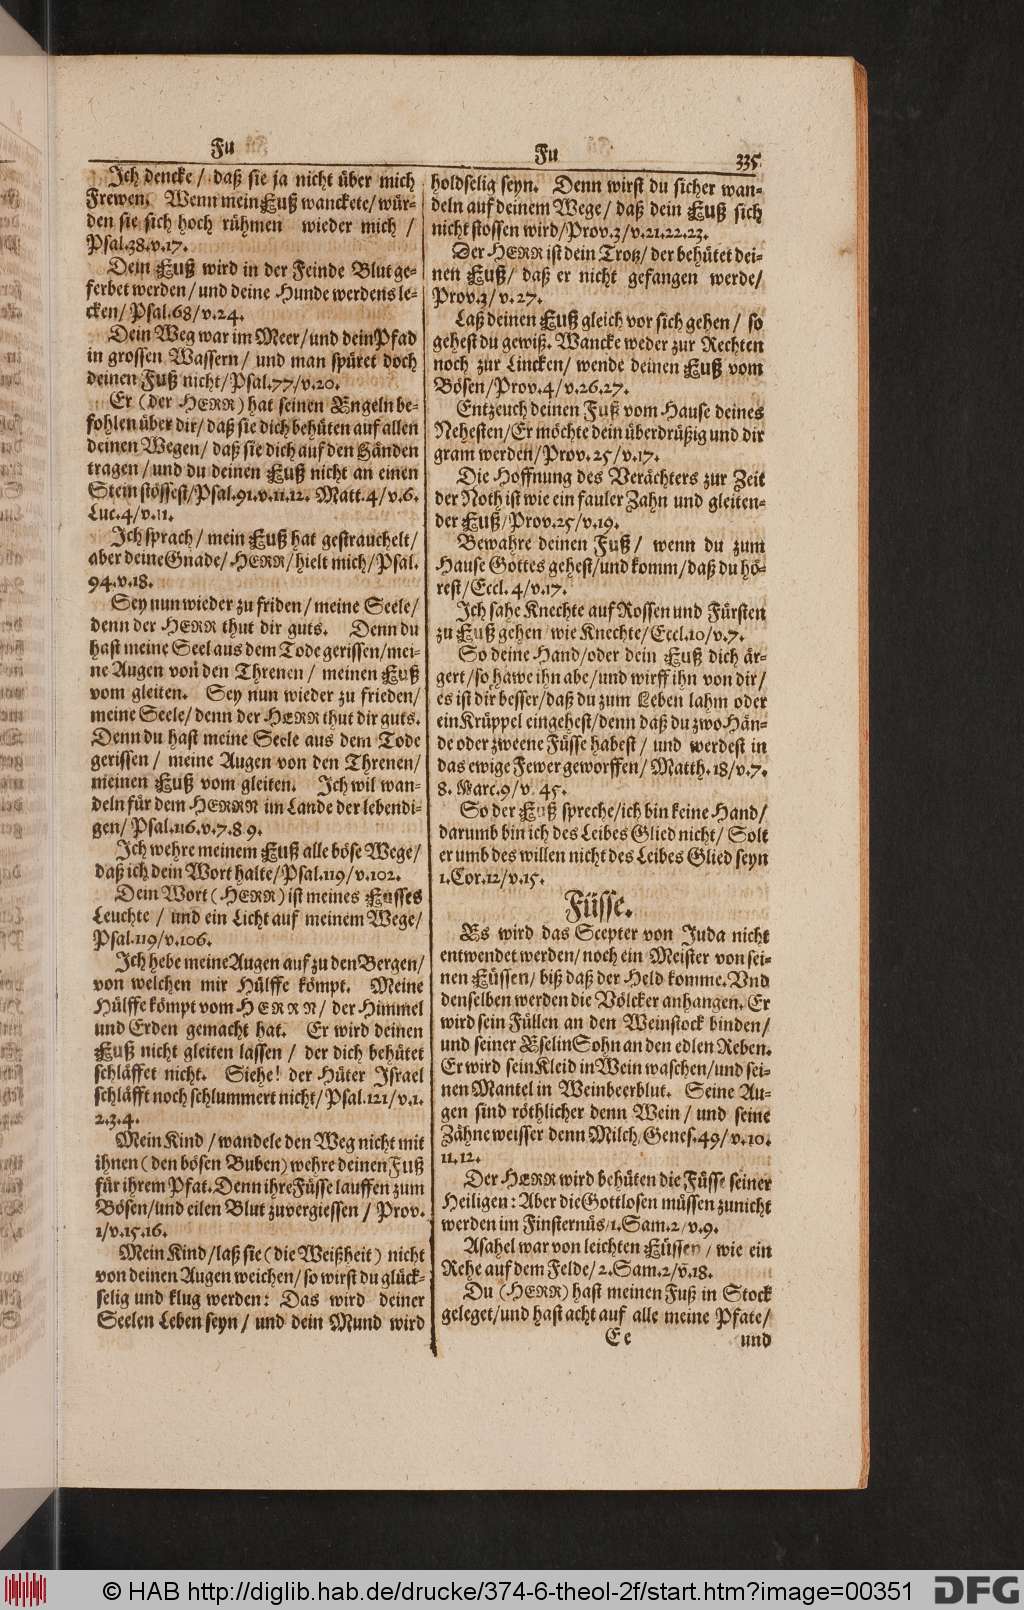 Fu
Fu
335
Ich dencke / daß sie ja nicht über mich
Frewen. Wenn mein Fuß wanckete/ wür-
den sie sich hoch rühmen wieder mich /
Psal. 38. v. 17.
Dein Fuß wird in der Feinde Blut ge-
ferbet werden / und deine Hunde werdens le-
cken / Psal. 68 / v. 24.
Dein Weg war im Meer / und dein Pfad
in grossen Wassern / und man spüret doch
deinen Fuß nicht / Psal. 77 / v. 20.
Er (der HERR) hat seinen Engeln be-
fohlen über dir / daß sie dich behüten auf allen
deinen Wegen / daß sie dich auf den Händen
tragen / und du deinen Fuß nicht an einen
Stein stössest / Psal. 91. v. 11. 12. Matt. 4 / v. 6.
Luc. 4 / v. 11.
Ich sprach / mein Fuß hat gestrauchelt /
aber deine Gnade / HERR / hielt mich / Psal.
94. v. 18.
Sey nun wieder zu friden / meine Seele /
denn der HERR thut dir guts. Denn du
hast meine Seel aus dem Tode gerissen / mei-
ne Augen von den Threnen / meinen Fuß
vom gleiten. Sey nun wieder zu frieden /
meine Seele / denn der HERR thut dir guts.
Denn du hast meine Seele aus dem Tode
gerissen / meine Augen von den Threnen /
meinen Fuß vom gleiten. Ich wil wan-
deln für dem HERRN im Lande der lebendi-
gen / Psal. 116. v. 7. 8 9.
Ich wehre meinem Fuß alle böse Wege /
daß ich dein Wort halte / Psal. 119 / v. 102.
Dein Wort (HERR) ist meines Fusses
Leuchte / und ein Licht auf meinem Wege /
Psal. 119 / v. 106.
Ich hebe meine Augen auf zu den Bergen /
von welchen mir Hülffe kömpt. Meine
Hülffe kömpt vom HERRN / der Himmel
und Erden gemacht hat. Er wird deinen
Fuß nicht gleiten lassen / der dich behütet
schläffet nicht. Siehe! der Hüter Israel
schläfft noch schlummert nicht / Psal. 121 / v. 1.
2. 3. 4.
Mein Kind / wandele den Weg nicht mit
ihnen (den bösen Buben) wehre deinen Fuß
für ihrem Pfat. Denn ihre Füsse lauffen zum
Bösen / und eilen Blut zuvergiessen / Prov.
1 / v. 15. 16.
Mein Kind / laß sie (die Weißheit) nicht
von deinen Augen weichen / so wirst du glück-
selig und klug werden: Das wird deiner
Seelen Leben seyn / und dein Mund wird
holdselig seyn. Denn wirst du sicher wan-
deln auf deinem Wege / daß dein Fuß sich
nicht stossen wird / Prov. 3 / v. 21. 22. 23.
Der HERR ist dein Trotz / der behütet dei-
nen Fuß / daß er nicht gefangen werde /
Prov. 3 / v. 27.
Laß deinen Fuß gleich vor sich gehen / so
gehest du gewiß. Wancke weder zur Rechten
noch zur Lincken / wende deinen Fuß vom
Bösen / Prov. 4 / v. 26. 27.
Entzeuch deinen Fuß vom Hause deines
Nehesten / Er möchte dein überdrüßig und dir
gram werden / Prov. 25 / v. 17.
Die Hoffnung des Verächters zur Zeit
der Noth ist wie ein fauler Zahn und gleiten-
der Fuß / Prov. 25 / v. 19.
Bewahre deinen Fuß / wenn du zum
Hause Gottes gehest / und komm / daß du hö-
rest / Eccl. 4 / v. 17.
Ich sahe Knechte auf Rossen und Fürsten
zu Fuß gehen wie Knechte / Eccl. 10 / v. 7.
So deine Hand / oder dein Fuß dich är-
gert / so hawe ihn abe / und wirff ihn von dir /
es ist dir besser / daß du zum Leben lahm oder
ein Krüppel eingehest / denn daß du zwo Hän-
de oder zweene Füsse habest / und werdest in
das ewige Fewer geworffen / Matth. 18 / v. 7.
8. Marc. 9 / v. 45.
So der Fuß spreche / ich bin keine Hand /
darumb bin ich des Leibes Glied nicht / Solt
er umb des willen nicht des Leibes Glied seyn
1. Cor. 12 / v. 15.
Füsse.
Es wird das Scepter von Juda nicht
entwendet werden / noch ein Meister von sei-
nen Füssen / biß daß der Held komme. Vnd
denselben werden die Völcker anhangen. Er
wird sein Füllen an den Weinstock binden /
und seiner Eselin Sohn an den edlen Reben.
Er wird sein Kleid in Wein waschen / und sei-
nen Mantel in Weinbeerblut. Seine Au-
gen sind röthlicher denn Wein / und seine
Zähne weisser denn Milch / Genes. 49 / v. 10.
11. 12.
Der HERR wird behüten die Füsse seiner
Heiligen: Aber die Gottlosen müssen zunicht
werden im Finsternüs / 1. Sam. 2 / v. 9.
Asahel war von leichten Füssen / wie ein
Rehe auf dem Felde / 2. Sam. 2 / v. 18.
Du (HERR) hast meinen Fuß in Stock
geleget / und hast acht auf alle meine Pfate /
Ee
und
© HAB http://diglib.hab.de/drucke/374-6-theol-2f/start.htm?image=00351
DFG